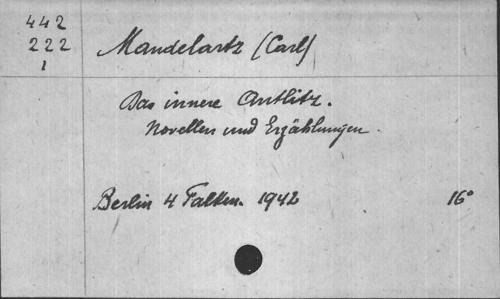 442
222
1
Mandelartz (Carl)
Das innere Antlitz.
Novellen und Erzählungen.
Berlin 4 Falken. 1942 16°